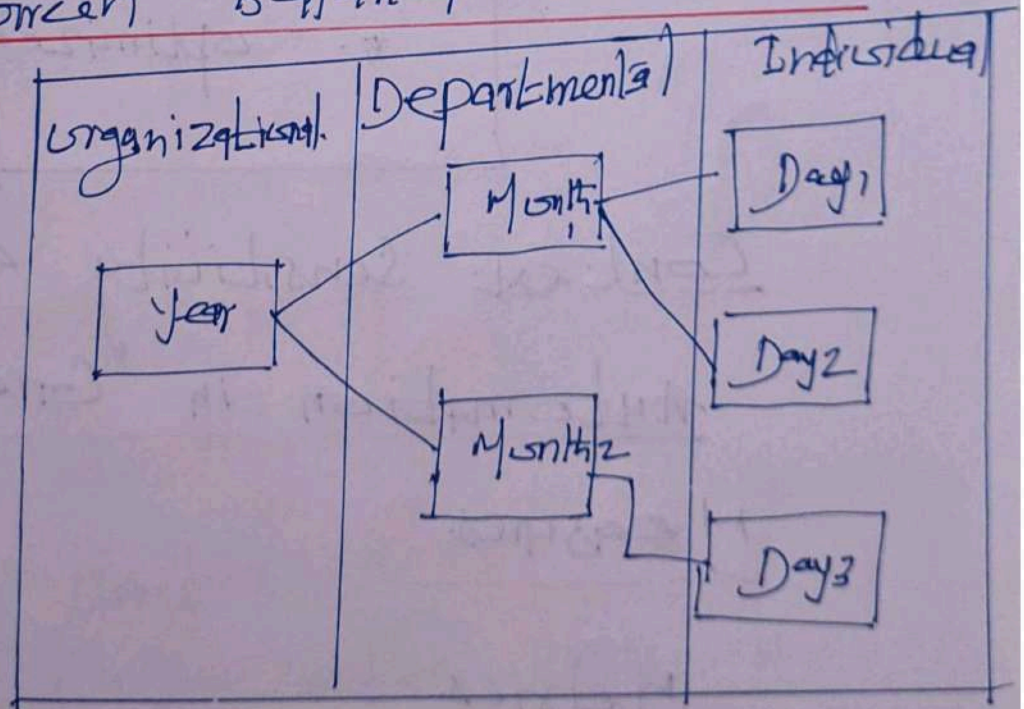 Organizational.
Departmental
Individual
Year
Month1
Month2
Day1
Day2
Day3